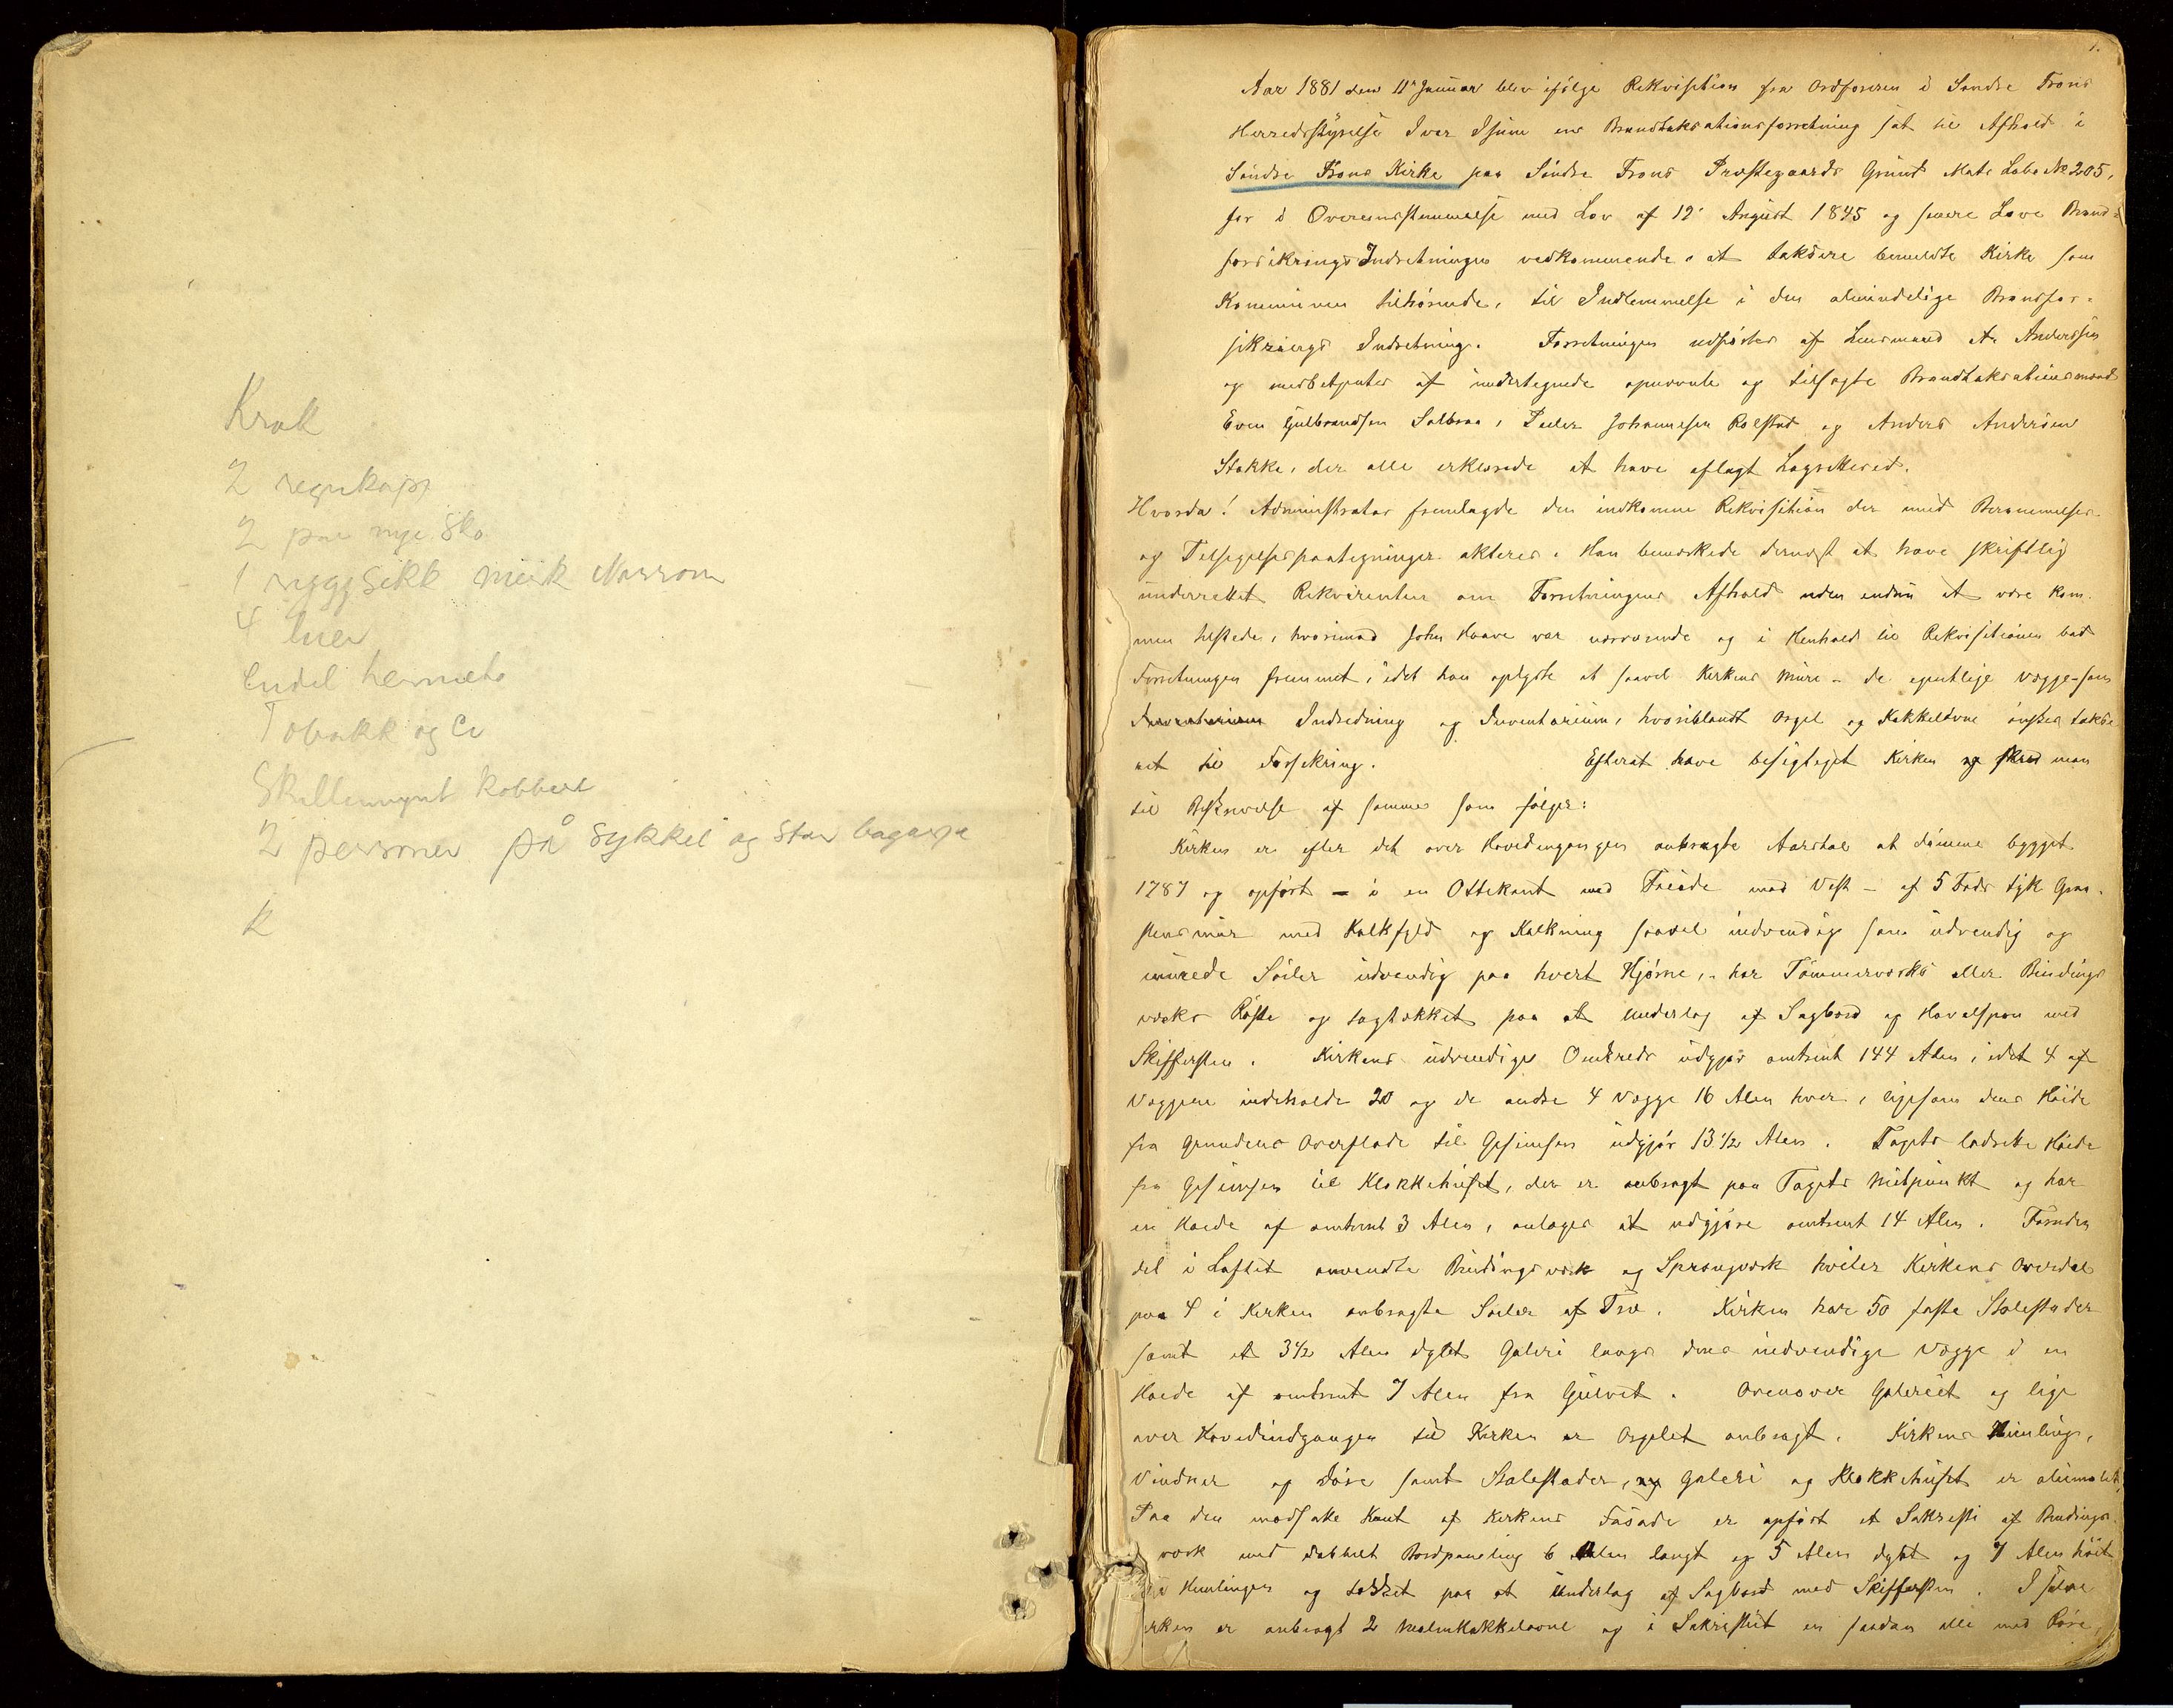 Krak
2 regnkapp
2 par nye sko
1 ryggsekk merk Norrøna
4 luer
Endel hermete
Tobakk og
Skillemynt kobber
2 personer på sykkel og stor bagasje
k
1.
Aar 1881 den 11te Januar blev ifølge Rekvisition fra Ordføreren i Søndre Frons
Herredsstyrelse Ivar Isum en Brandtakstationsforretning sat til Afhold i
Søndre Frons Kirke paa Søndre Frons Præstegaards Grund Matr Løbe No 205,
for i Overensstemmelse med Lov af 19' August 1845 og senere Love Brand-
forsikrings Indretningen vedkommende, at taksere bemeldte Kirke som
Kommunen tilhørende, til Indlemmelse i den almindelige Brandfor-
sikrings Indretning. Forretningen udførtes af Lensmand A. Anderssen
og medbetjentes af undertegnede opnævnte og tilsagte Brandtaksationsmænd
Even Gulbrandsen Solbraa, Peder Johannesen Rolstad og Anders Andersen
Stokke, der alle erklærede at have aflagt Lagrettesed.
Hvorda! Administrator fremlagde den indkomne Rekvisition der med Berammelses-
og Tilsigelsespaategninger akteres. Han bemærkede dernæst at have skriftlig
underrettet Rekvirenten om Forretningens Afhold uden endnu at være kom-
men tilstede, hvorimod John Haave var nærværende og i Henhold til Rekvisitionen bad
Forretningen fremmet, idet han oplyste at saavel Kirkens Mure - de egentlige Vægge - som
Inventarium Indredning og Inventarium, hvoriblandt Orgel og Kakkelovne ønskes takse-
ret til Forsikring. Efterat have besigtiget Kirken og skred man
til Beskrivelse af samme som følger:
Kirken er efter det over Hovedingangen anbragte Aarstal at dømme bygget
1787 og opført - i en Ottekant med Facade mod Vest - af 5 Fods tyk Graa-
stensmur med Kalkfyld og Kalkning saavel indvendig som udvendig og
murede Søiler udvendig paa hvert Hjørne, - har Tømmerværks eller Bindings
værks Røste og tagtækket paa et Underlag af Sagbord og Høvelspon med
Skiffersten. Kirkens udvendige Omkreds udgjør omtrent 144 Alen, idet 4 af
Væggene indeholde 20 og de andre 4 Vægge 16 Alen hver, ligesom dens Høide
fra Grundens Overflade til Gesimsen udgjør 13 1/2 Alen. Tagets lodrette Høide
fra Gesimsen til Klokkehuset, der er anbragt paa Tagets Midtpunkt og har
en Høide af omtrent 3 Alen, antages at udgjøre omtrent 14 Alen. Foruden
det i Loftet anvendte Bindingsværk og Sprængværk hviler Kirkens Overdel
paa 4 i Kirken anbragte Søiler af Træ. Kirken har 50 faste Stolestader
samt et 3 1/2 Alen dybt Galeri langs dens indvendige Vægge i en
Høide af omtrent 7 Alen fra Gulvet. Ovenover Galeriet og lige
over Hovedindgangen til Kirken er Orgelet anbragt. Kirkens Himling,
Vinduer og Døre samt Stolestader, og Galeri og Klokkehuset er oliemalet,
Paa den modsatte Kant af Kirkens Fasade er opført et Sakresti af Bindings-
værk med dobbelt Bordpaneling 6 Alen langt og 5 Alen dybt og 7 Alen høit
Himlingen og tækket paa et Underlag af Sagbord med Skiffersten. I selve
Kirken er anbragt 2 Malmkakkelovne og i Sakristiet en saadan alle med Røre,